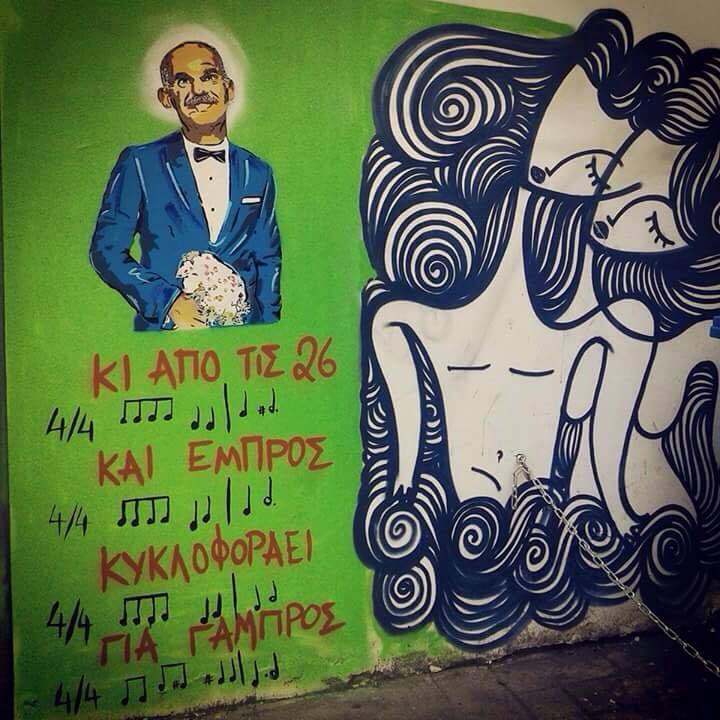 ΚΙ ΑΠΟ ΤΙΣ 26
4/4
ΚΑΙ ΕΜΠΡΟΣ
4/4
ΚΥΚΛΟΦΟΡΑΕΙ
4/4
ΓΙΑ ΓΑΜΠΡΟΣ
4/4